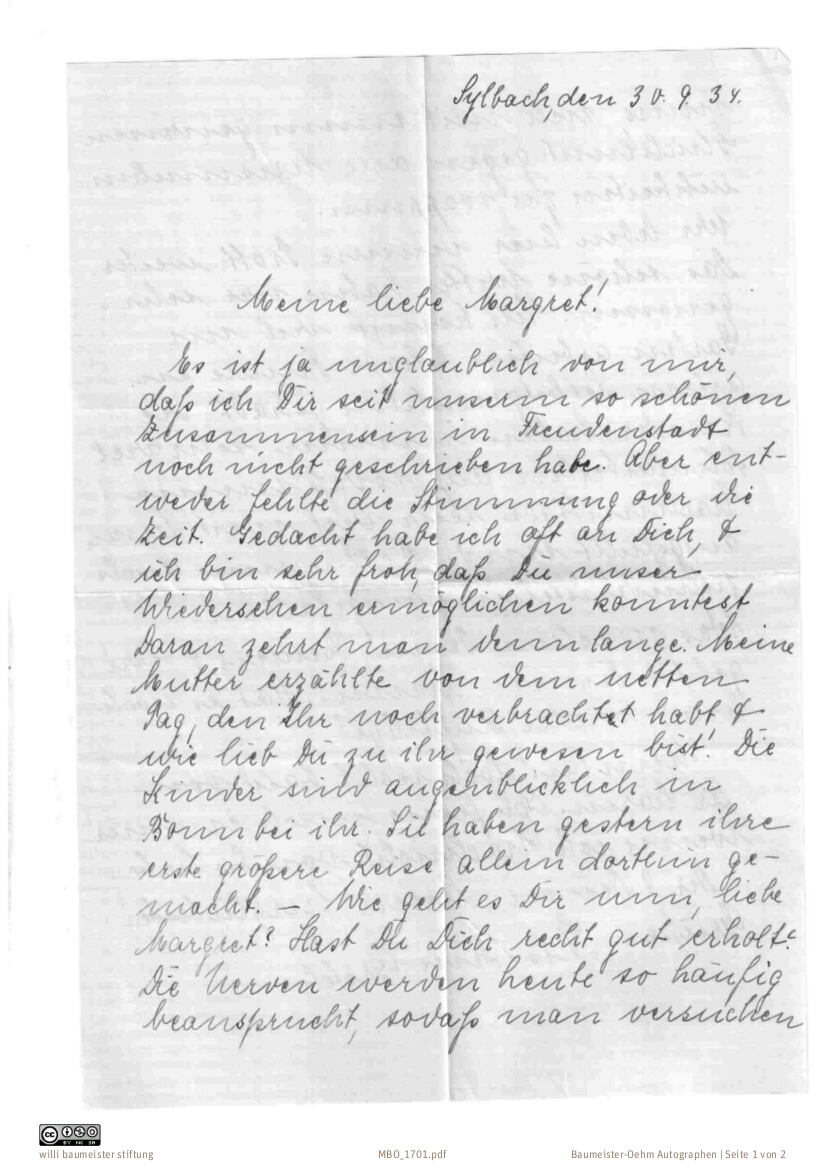 Sylbach, den 30. 9. 34.
Meine liebe Margret!
Es ist ja unglaublich von mir,
daß ich Dir seit unserm so schönen
Zusammensein in Freudenstadt
noch nicht geschrieben habe. Aber ent-
weder fehlte die Stimmung oder die
Zeit. Gedacht habe ich oft an Dich, &
ich bin sehr froh, daß Du unser
Wiedersehen ermöglichen konntest
Daran zehrt man denn lange. Meine
Mutter erzählte von dem netten
Tag, den Ihr noch verbrachtet habt, &
wie lieb Du zu ihr gewesen bist! Die
Kinder sind augenblicklich in
Bonn bei ihr. Sie haben gestern ihre
erste größere Reise allein dorthin ge-
macht. – Wie geht es Dir nun, liebe
Margret? Hast Du Dich recht gut erholt?
Die Nerven werden heute so häufig
beansprucht, sodaß man versuchen
CC BY NC SA
willi baumeister stiftung
MBO_1701.pdf
Baumeister-Oehm Autographen | Seite 1 von 2